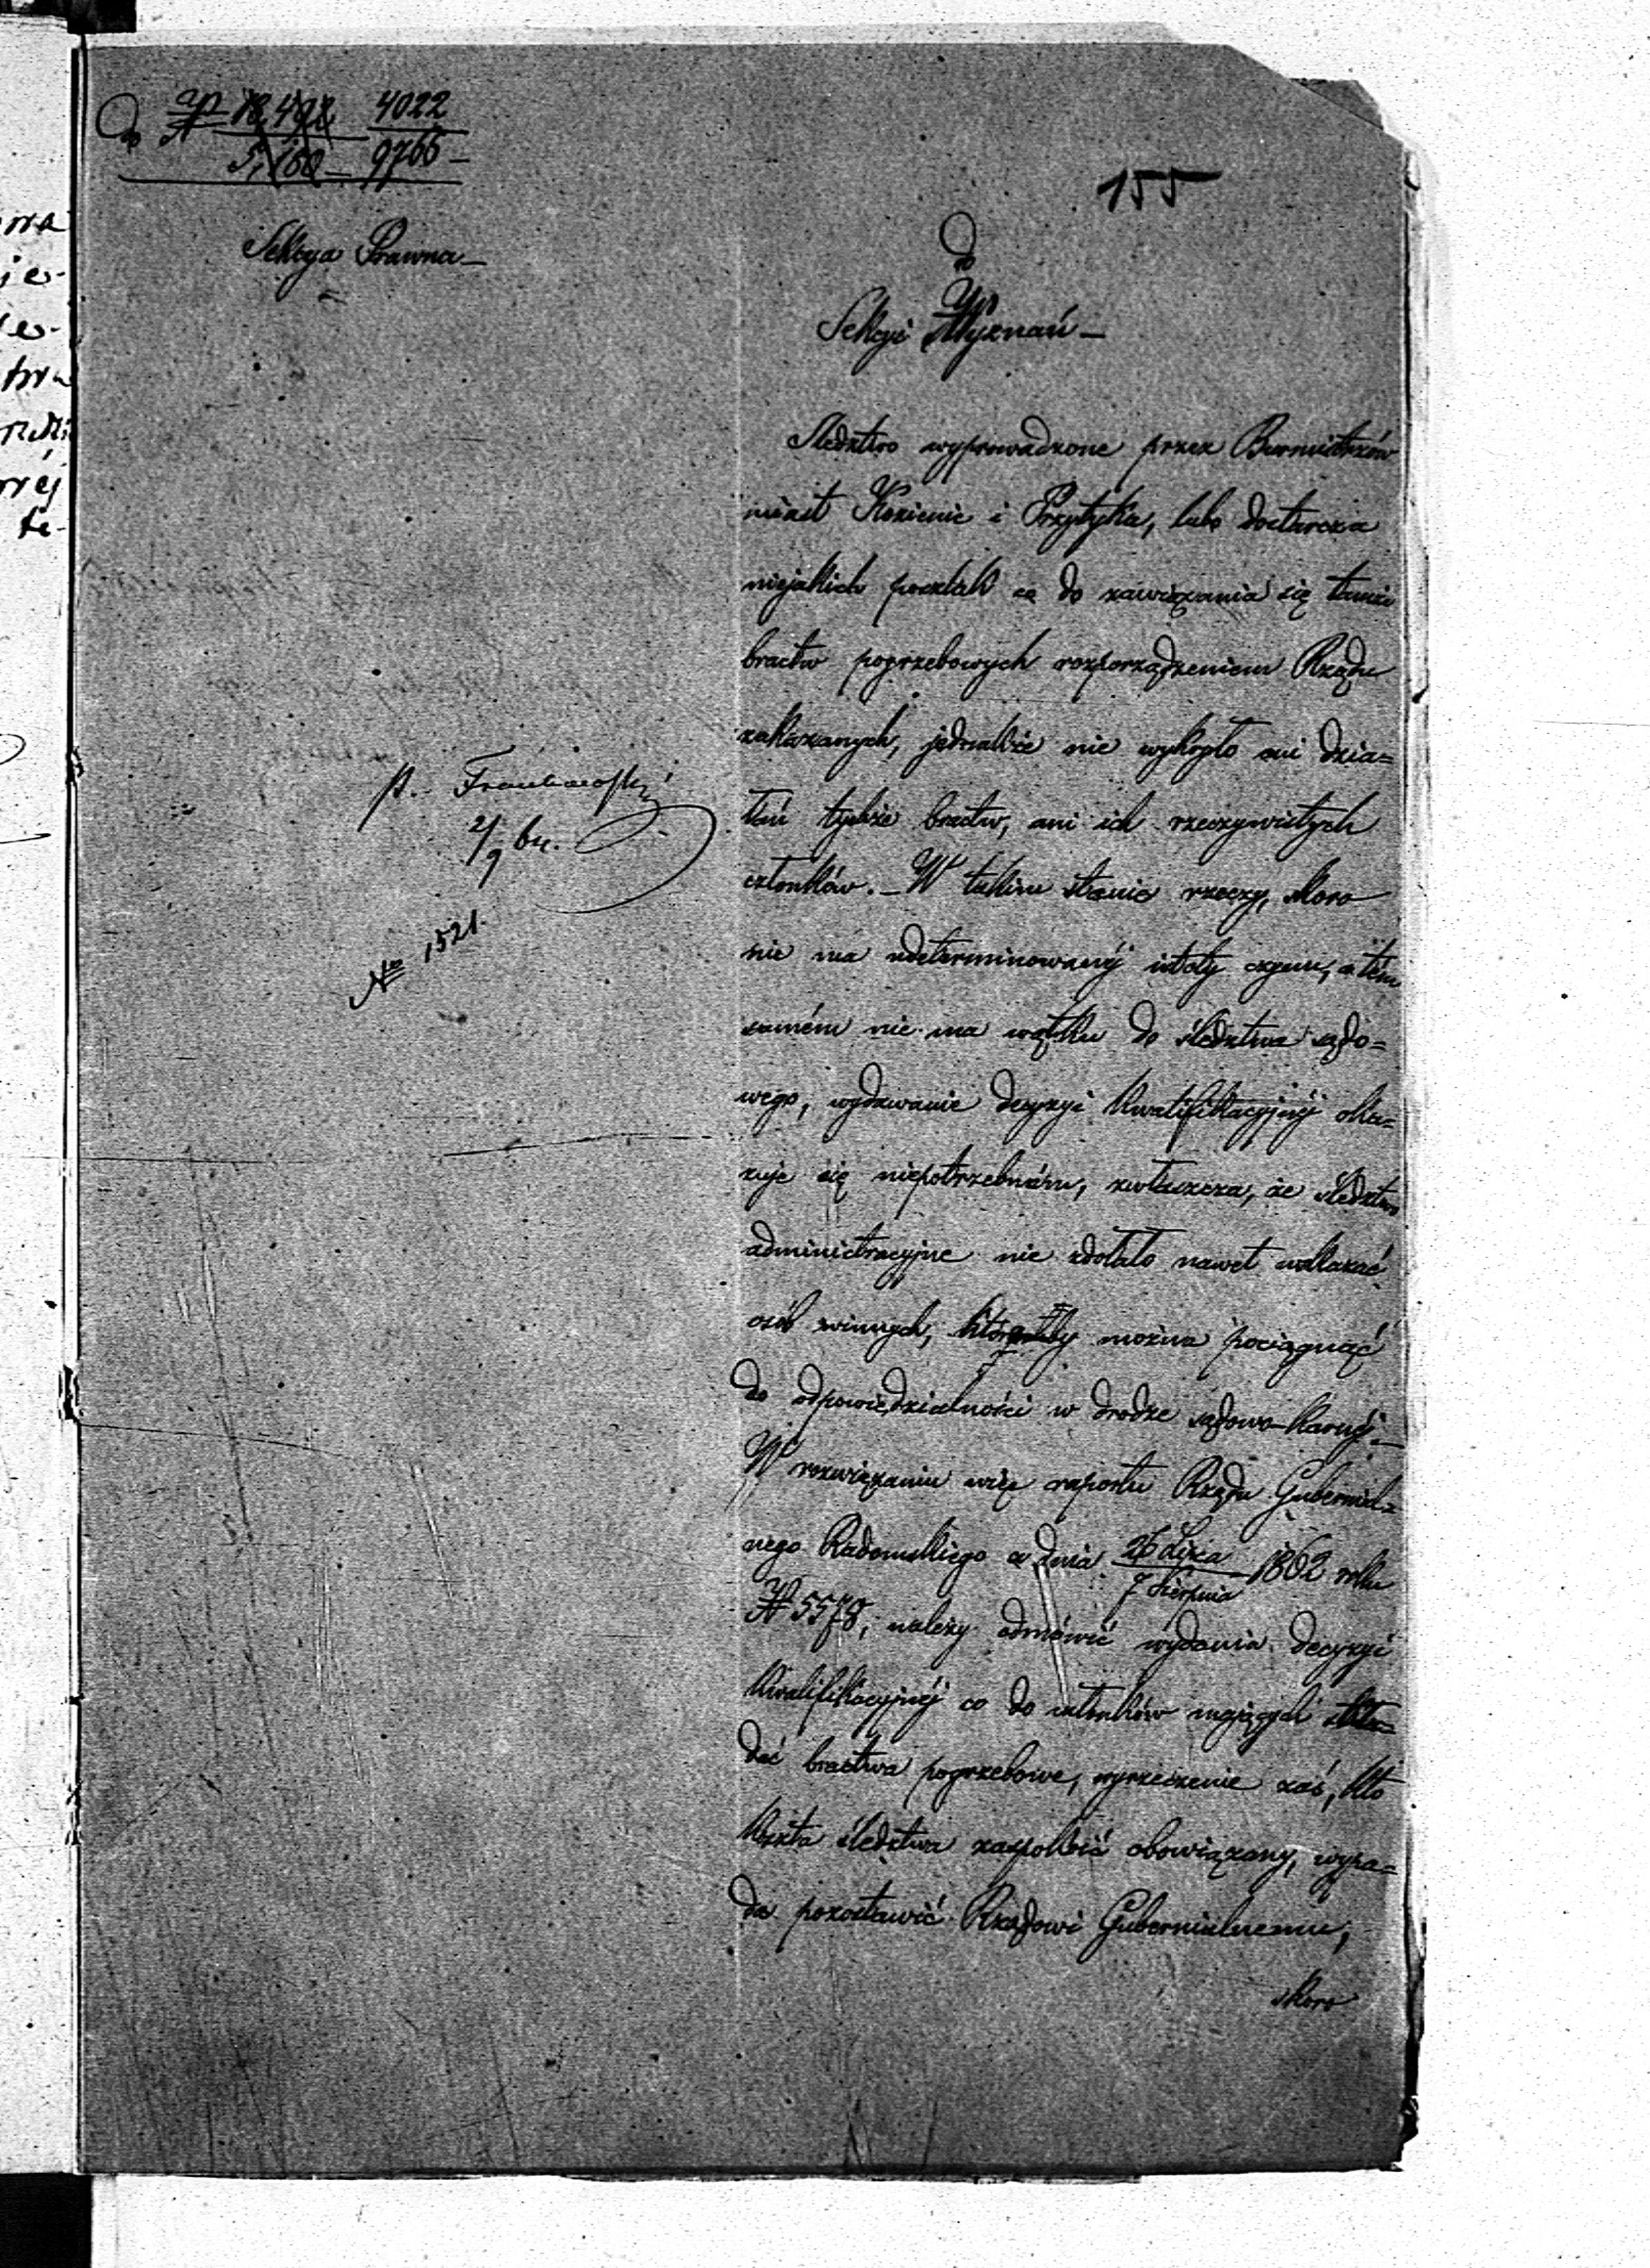 Do № 18,492 4022
5,160 – 9766 –
155
Sekcya Prawna –
do
Sekcyi Wyznań –
Śledztwo wyprowadzone przez Burmistrzów
miast Kozienic i Przytyka, lubo dostarcza
niejakich poszlak co do zawiązania się tamże
bractw pogrzebowych rozporządzeniem Rządu
zakazanych, jednakże nie wykryto ani dzia=
łań tychże bractw, ani ich rzeczywistych
członków. – W takim stanie rzeczy, skoro
nie ma udeterminowanéj istoty czynu, a tém
samém nie ma wątku do śledztwa sądo=
wego, wydawanie decyzyi kwalifikacyjnéj oka=
zuje się niepotrzebném, zwłaszcza, że śledztwo
administracyjne nie zdołało nawet wskazać
osób winnych, któreby można pociągnąć
do odpowiedzialności w drodze sądowo-karnéj. –
W rozwiązaniu więc raportu Rządu Gubernial=
nego Radomskiego z dnia 26 Lipca / 7 Sierpnia 1862 roku
№ 5578, należy odmówić wydania decyzyi
kwalifikacyjnéj co do członków mających skła=
dać bractwa pogrzebowe, wyrzeczenie zaś, kto
koszta śledztwa zaspokoić obowiązany, wypa=
da pozostawić Rządowi Gubernialnemu,
skoro
p.
2/9 br.
№ 1521.